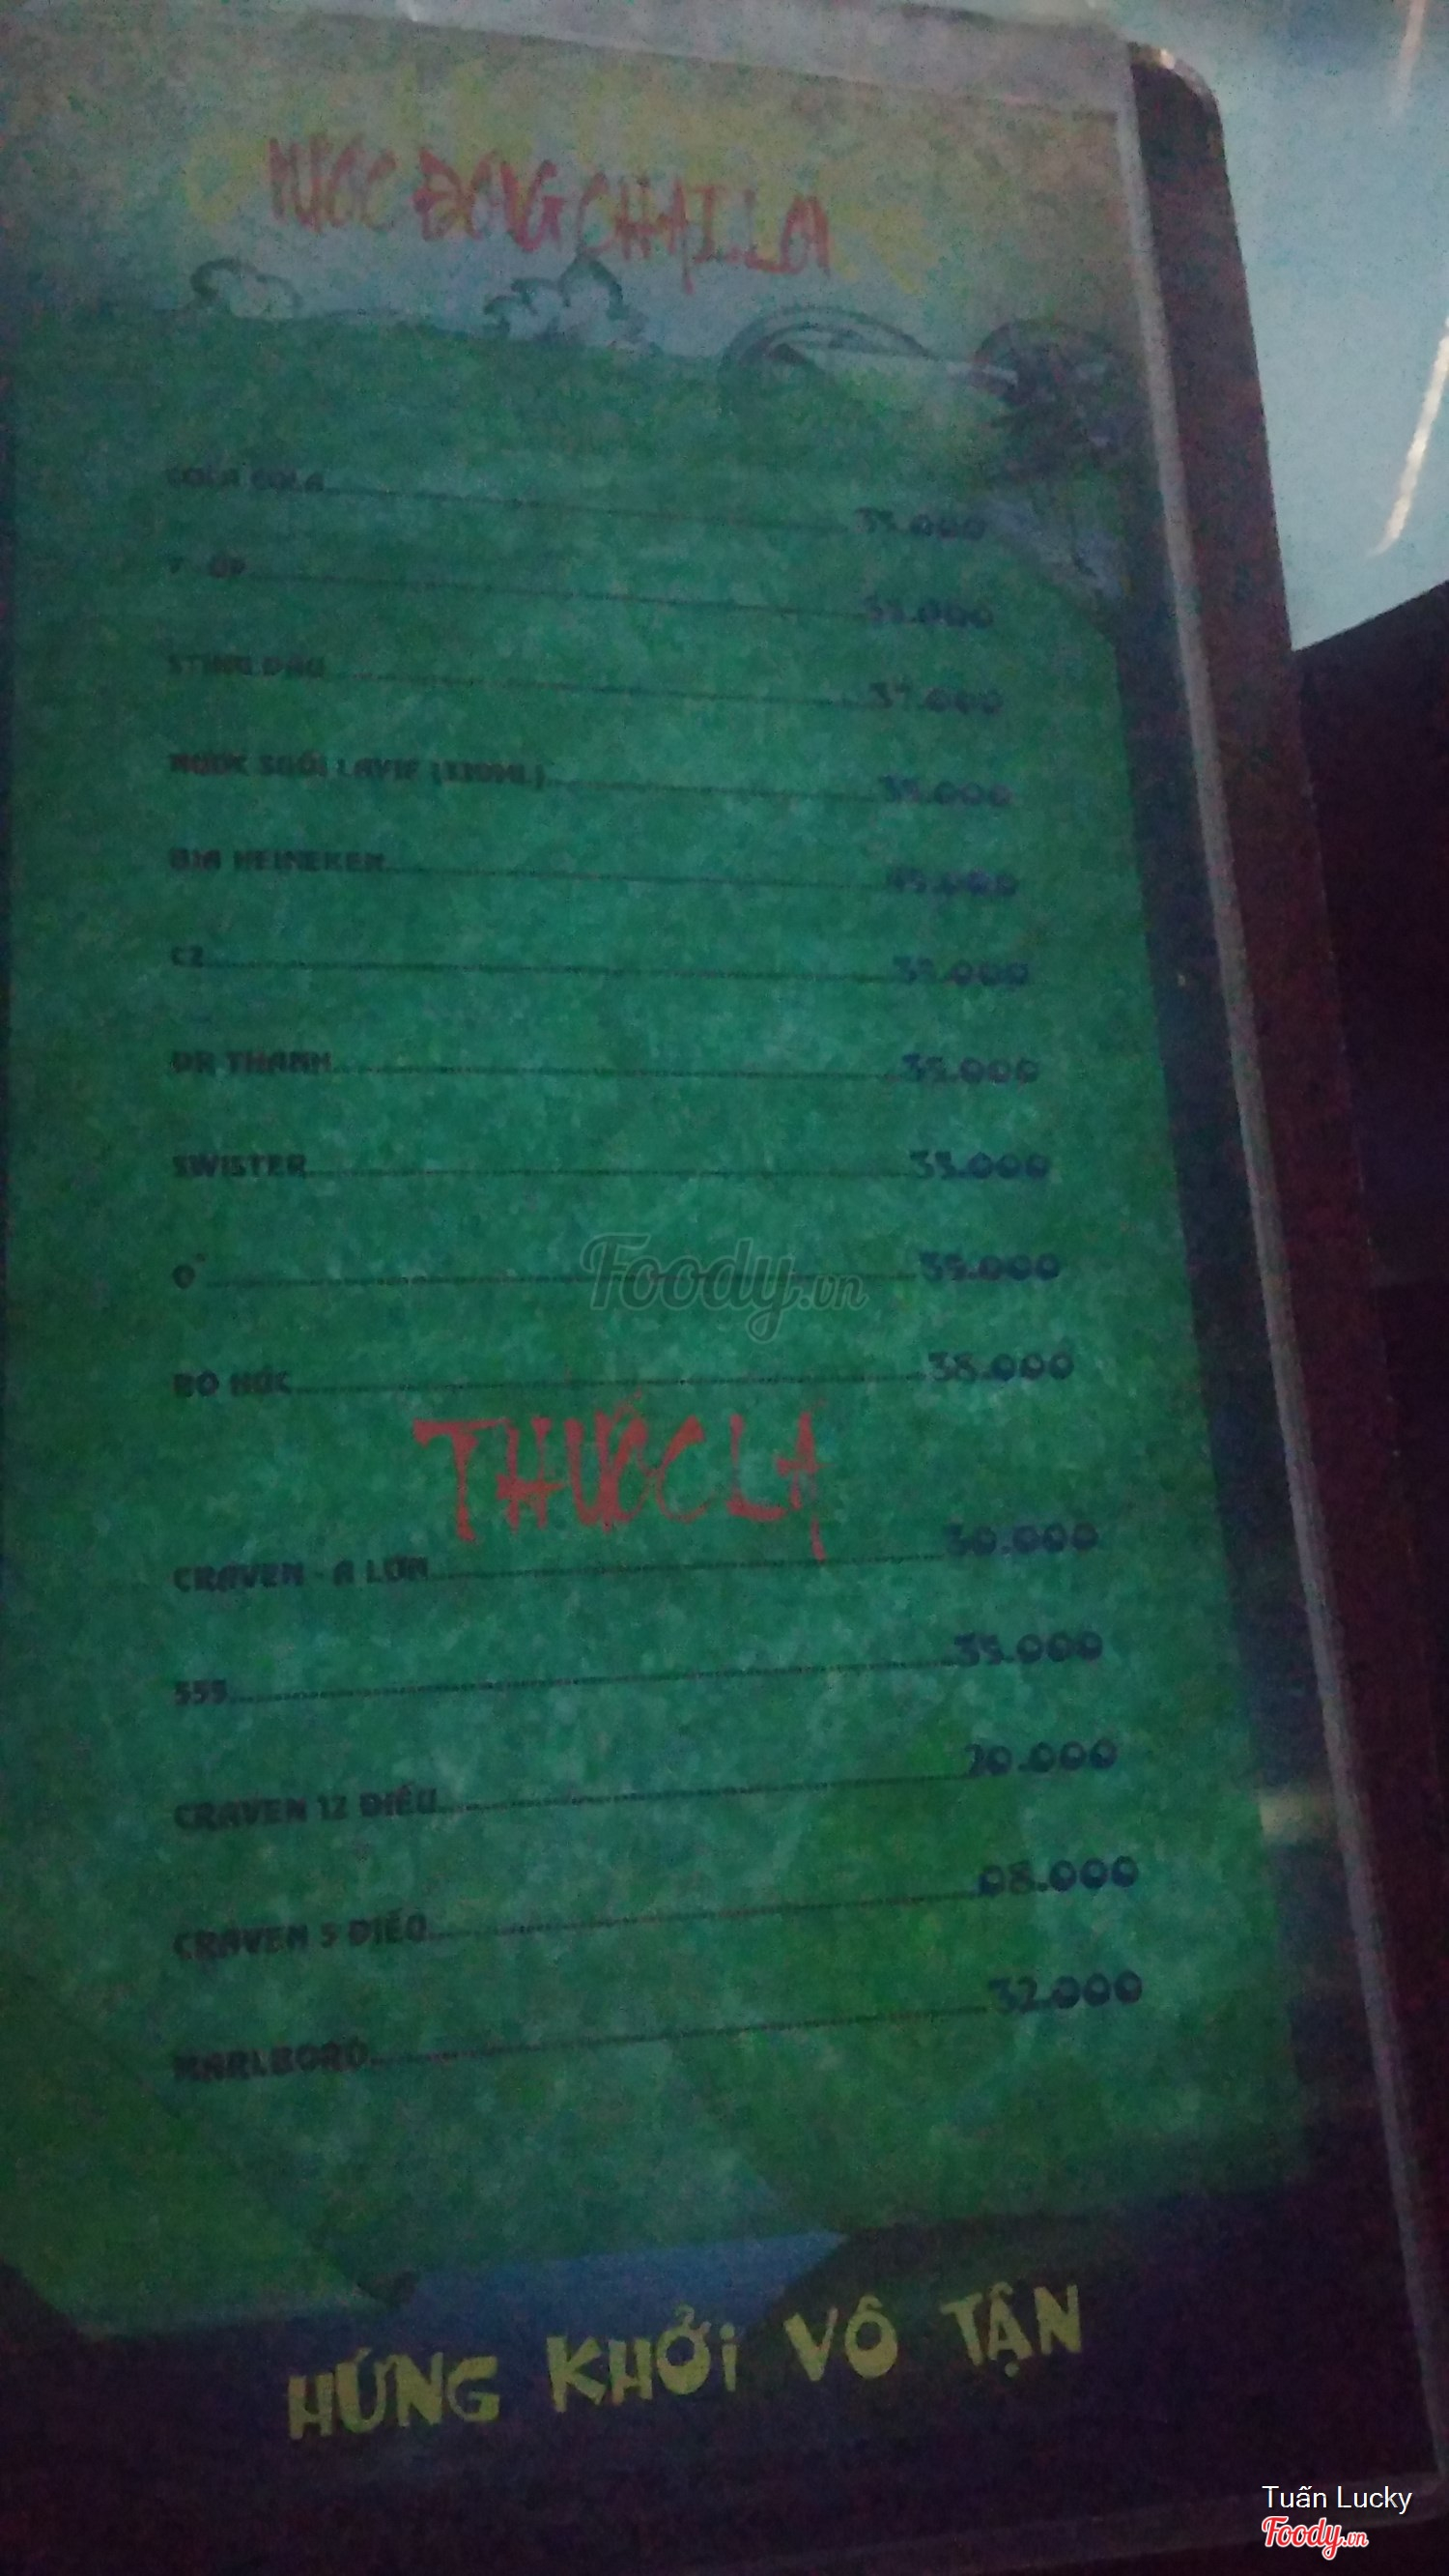 NƯỚC ĐÓNG CHAI, LON
COLA COLA 35.000
7 - UP 35.000
STING DÂU 37.000
NƯỚC SUỐI LAVIE (330ML) 35.000
BIA HEINEKEN 45.000
C2 35.000
DR THANH 35.000
SWISTER 35.000
O° 35.000
BÒ HÚC 38.000
THUỐC LÁ
CRAVEN - A LỚN 30.000
555 35.000
CRAVEN 12 ĐIẾU 20.000
CRAVEN 5 ĐIẾU 08.000
MARLBORO 32.000
HỨNG KHỞI VÔ TẬN
Foody.vn
Tuấn Lucky
Foody.vn